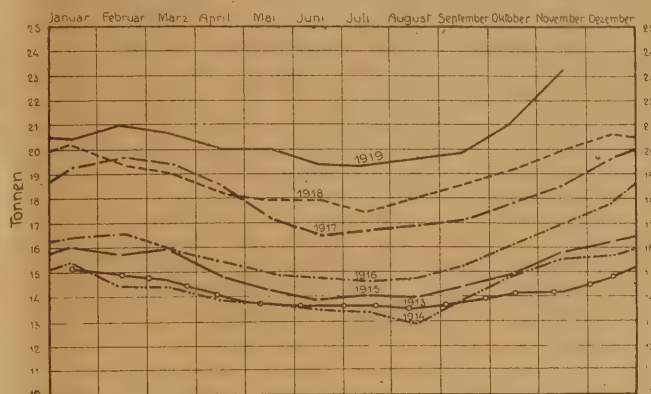 Januar Februar März April Mai Juni Juli August September Oktober November Dezember
25
24
23
22
21
20
19
18
17
16
15
14
13
12
11
Tonnen
1919
1918
1917
1916
1915
1913
1914